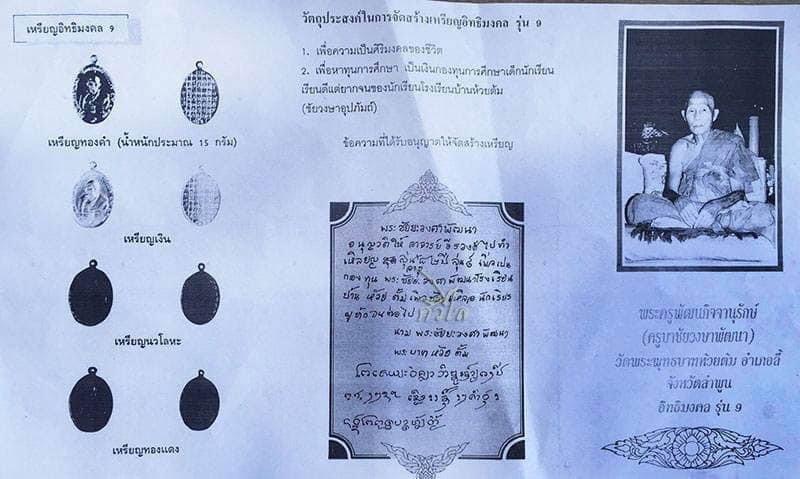 เหรียญอิทธิมงคล 9
เหรียญทองคำ (น้ำหนักประมาณ 15 กรัม)
เหรียญเงิน
เหรียญนวโลหะ
เหรียญทองแดง
วัตถุประสงค์ในการจัดสร้างเหรียญอิทธิมงคล รุ่น 9
1. เพื่อความเป็นศิริมงคลของชีวิต
2. เพื่อหาทุนการศึกษา เป็นเงินกองทุนการศึกษาเด็กนักเรียน
เรียนดีแต่ยากจนของนักเรียนโรงเรียนบ้านห้วยต้ม
(ชัยวงษาอุปภัมถ์)
ข้อความที่ได้รับอนุญาตให้จัดสร้างเหรียญ
พระชัยยะวงศาพัฒนา
อนุญาติให้ อาจารย์ ไปทำ
เหลียญ
กองทุน พระชัยยะวงศาพัฒนาโรงเรียน
บ้านห้วยต้ม นักเรียน
ต่อไป
นาม พระชัยยะวงศาพัฒนา
พระบาทห้วยต้ม
พระครูพัฒนกิจจานุรักษ์
(ครูบาชัยวงษาพัฒนา)
วัดพระพุทธบาทห้วยต้ม อำเภอลี้
จังหวัดลำพูน
อิทธิมงคล รุ่น 9